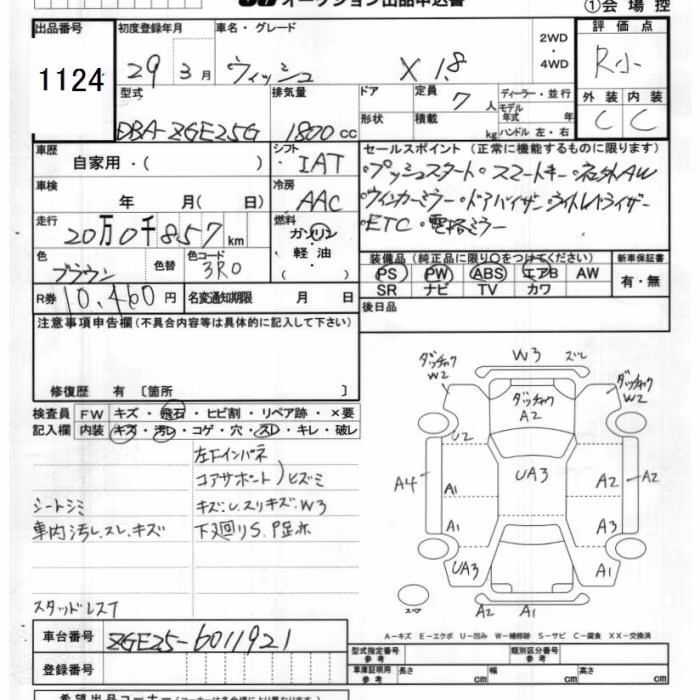 オークション出品申込書
①会場控
出品番号
1124
初度登録年月
29 3月
車名・グレード
ウィッシュ X 1.8
2WD
・
4WD
評価点
R小
外装 内装
C C
型式
DBA-ZGE25G
排気量
1800cc
ドア
形状
定員
7人
積載
kg
ディーラー・並行
モデル年式 年
ハンドル 左・右
車歴
自家用・( )
シフト
IAT
車検
年 月( 日)
冷房
AAC
走行
20万0千857km
燃料
ガソリン
・
軽油
( )
色
ブラウン
色替
色コード
3R0
R券 10,460円
名変通知期限 月 日
セールスポイント(正常に機能するものに限ります)
・プッシュスタート・スマートキー・社外AW
・ウィンカーミラー・ドアバイザー・
・ETC・電格ミラー
装備品(純正品に限り○をつけてください)
PS PW ABS エアB AW
SR ナビ TV カワ
新車保証書
有・無
後日品
注意事項申告欄(不具合内容等は具体的に記入して下さい)
修復歴 有 〔箇所 〕
検査員
記入欄
FW キズ・飛石・ヒビ割・リペア跡・×要
内装 キズ・汚レ・コゲ・穴・スレ・キレ・破レ
左下インパネ
コアサポート)ヒズミ
シートシミ
キズ:U.スリキズ:W3
車内汚レ.スレ.キズ
下廻りS.P
スタッドレス
W3 ズレ
ダッチャク
W2
ダッチャク
W2
ダッチャク
A2
U2
UA3
A4
A1
A2
A2
A1
A3
UA3
A1
A2 A1
スペア
A-キズ E-エクボ U-凹み W-補修跡 S-サビ C-腐食 XX-交換済
車台番号
ZGE25-6011921
登録番号
型式指定番号
参考
類別区分番号
参考
車庫証明用
参考
長さ cm
幅 cm
高さ cm
希望出品コーナー